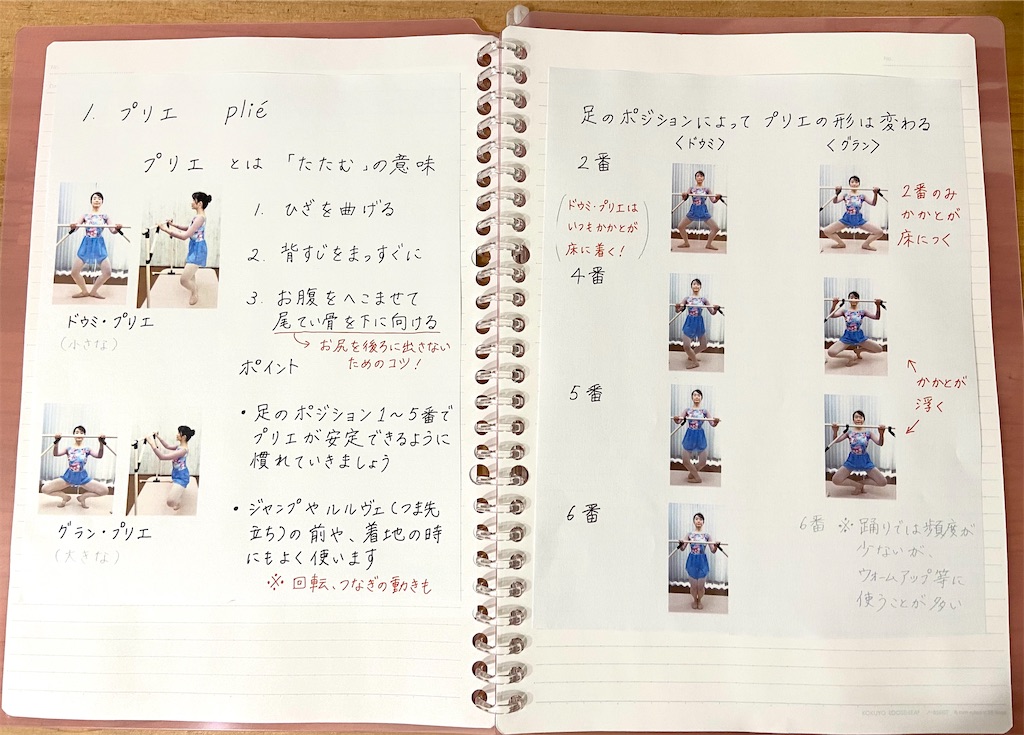 1. プリエ plié
プリエ とは 「たたむ」の意味
1. ひざを曲げる
2. 背すじをまっすぐに
3. お腹をへこませて
尾てい骨を下に向ける
お尻を後ろに出さない
ためのコツ！
ドゥミ・プリエ
(小さな)
ポイント
・足のポジション1〜5番で
プリエが安定できるように
慣れていきましょう
・ジャンプやルルヴェ(つま先
立ち)の前や、着地の時
にもよく使います
※ 回転、つなぎの動きも
グラン・プリエ
(大きな)
足のポジションによって プリエの形は変わる
〈ドゥミ〉 〈グラン〉
2番
(ドゥミ・プリエは
いつもかかとが
床に着く！)
2番のみ
かかとが
床につく
4番
かかとが
浮く
5番
6番
6番 ※ 踊りでは頻度が
少ないが、
ウォームアップ等に
使うことが多い